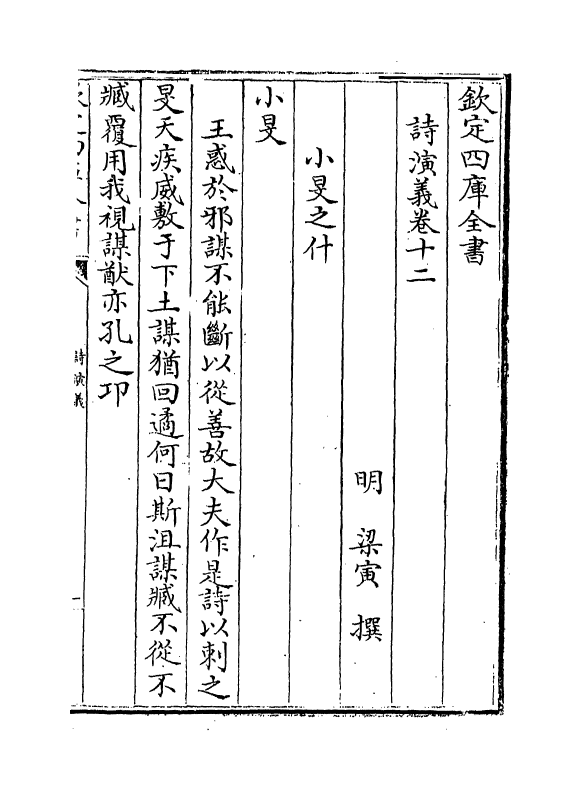 欽定四庫全書
詩演義卷十二
明 梁寅 撰
小旻之什
小旻
王惑於邪謀不能斷以從善故大夫作是詩以刺之
旻天疾威敷于下土謀猶回遹何日斯沮謀臧不從不
臧覆用我視謀猷亦孔之邛
詩演義
一